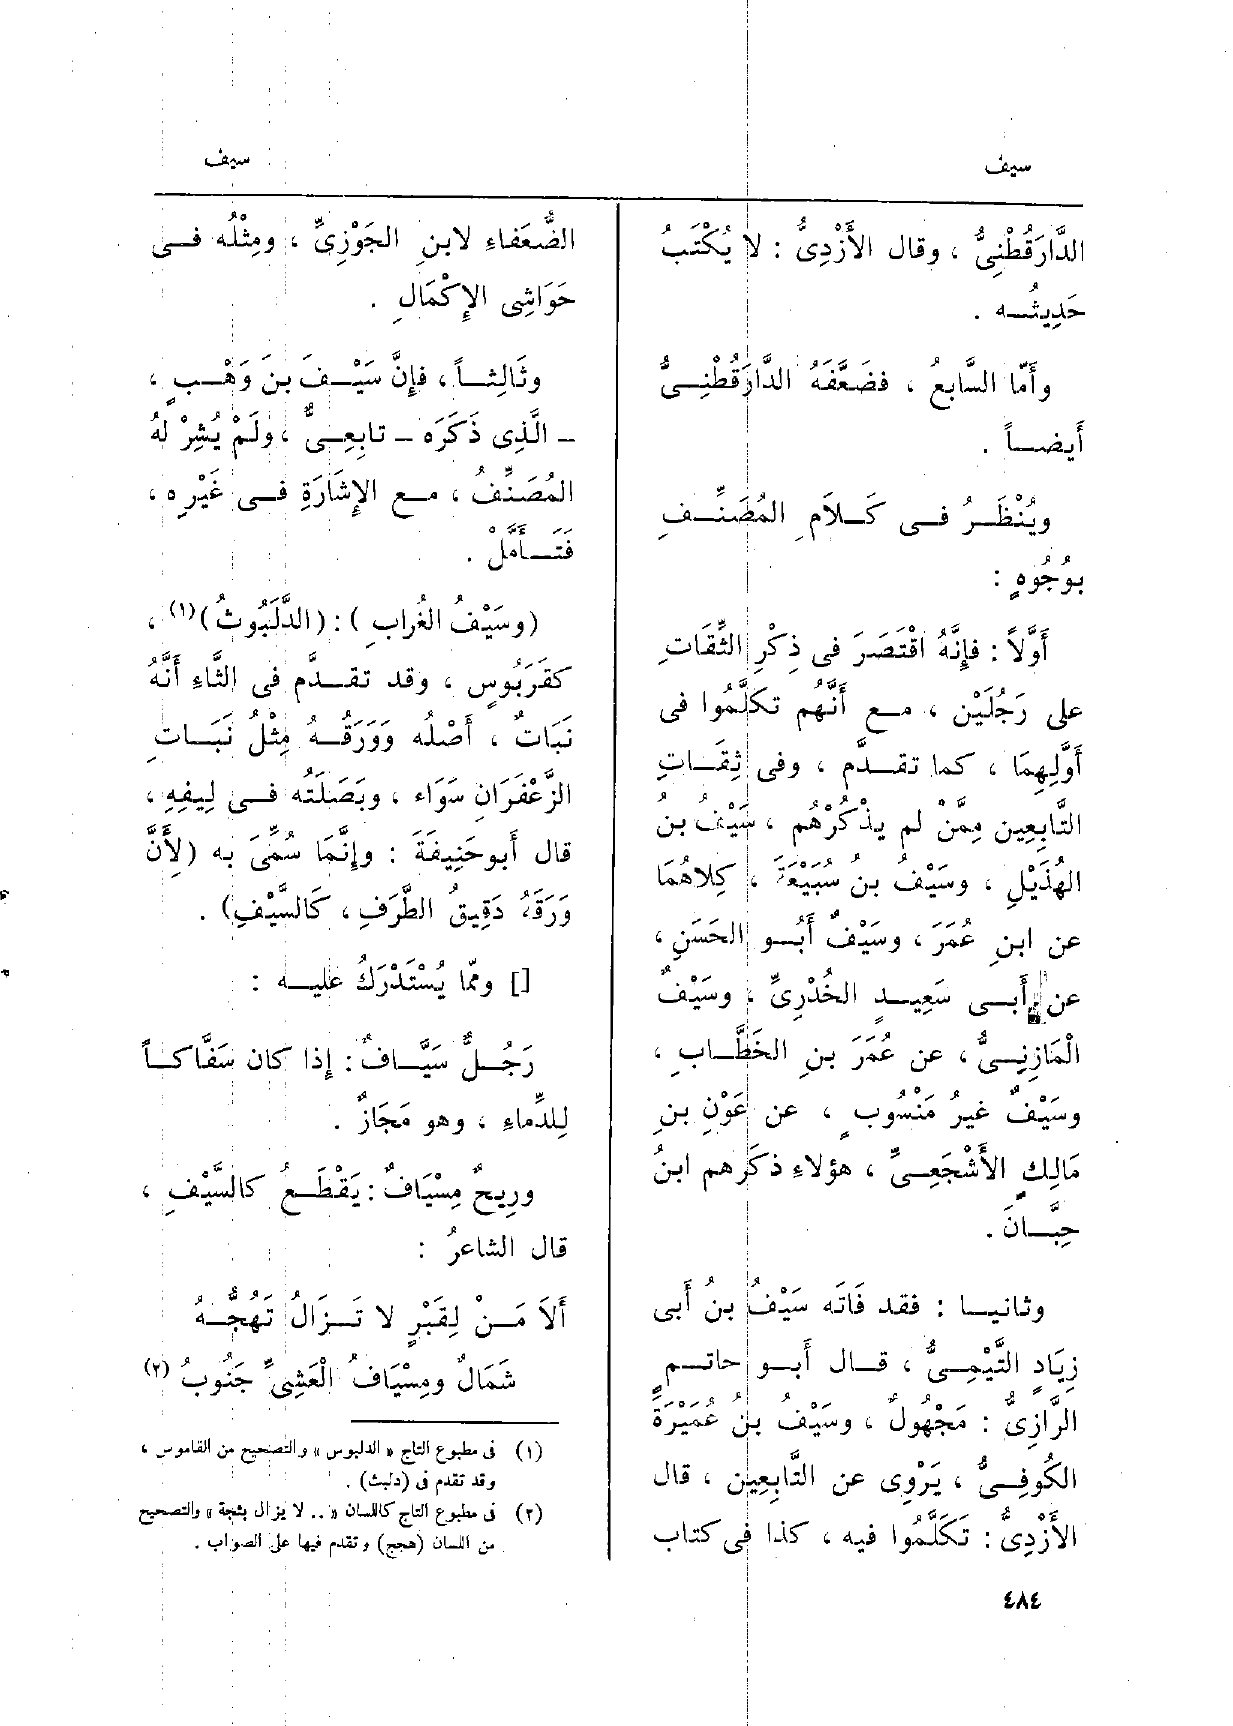 سيف
سيف
الدَّارَقُطْنِىُّ ، وقال الأَزْدِىُّ : لا يُكْتَبُ
حَدِيثُــه .
وأَمّا السَّابِعُ ، فضَعَّفَهُ الدَّارَقُطْنِــىُّ
أَيضــاً .
ويُنْظَــرُ فــى كَــلاَمِ المُصَنِّــفِ
بوُجُوهٍ :
أَوَّلاً : فإِنَّهُ اقْتَصَرَ فى ذِكْرِ الثِّقَاتِ
على رَجُلَيْن ، مــع أَنَّهُم تكَلَّمُوا فى
أَوَّلِهِمَا ، كما تقــدَّم ، وفى ثِقَــاتِ
التَّابِعِين مِمَّنْ لم يذْكُرْهُم ، سَيْفُ بن
الهُذَيْلِ ، وسَيْفُ بن سُبَيْعَةَ ، كِلاهُمَا
عن ابنِ عُمَرَ ، وسَيْفٌ أَبُــو الحَسَنِ ،
عن أَبــى سَعِيــدٍ الخُدْرِىِّ ، وسَيْفٌ
الْمَازِنِــىُّ ، عن عُمَرَ بنِ الخَطَّــابِ ،
وسَيْفٌ غيرُ مَنْسُوبٍ ، عن عَوْنِ بنِ
مَالِكٍ الأَشْجَعِــىِّ ، هؤلاءِ ذكَرَهم ابنُ
حِبَّــانَ .
وثانيــا : فقد فَاتَه سَيْفُ بنُ أَبى
زِيَادٍ التَّيْمِــىُّ ، قــال أَبــو حاتــمٍ
الرَّازِىُّ : مَجْهُولٌ ، وسَيْفُ بنُ عُمَيْرَةَ
الكُوفِــىُّ ، يَرْوِى عن التَّابِعِين ، قال
الأَزْدِىُّ : تَكَلَّمُوا فيه ، كذا فى كتاب
الضُّعَفاءِ لابنِ الجَوْزِىِّ ، ومِثْلُه فــى
حَوَاشِى الإِكْمَالِ .
وثَالِثــاً ، فإِنَّ سَيْــفَ بنَ وَهْــبٍ ،
– الَّذِى ذَكَرَه – تابعِــىٌّ ، ولَمْ يُشِرْ لهُ
المُصَنِّفُ ، مــع الإِشَارَةِ فــى غَيْرِه ،
فَتَــأَمَّلْ .
(وسَيْفُ الغُرابِ ) : (الدَّلَبُوثُ)(١) ،
كقَرَبُوسٍ ، وقد تقــدَّم فى الثَّاءِ أَنَّهُ
نَبَاتٌ ، أَصْلُه وَوَرَقُــهُ مِثْلُ نَبَــاتِ
الزَّعْفَرَانِ سَوَاء ، وبَصَلَتُه فــى لِيفِهِ ،
قال أَبو حَنِيفَةَ : وإِنَّمَا سُمِّىَ به (لِأَنَّ
وَرَقَهُ دَقِيقُ الطَّرَفِ ، كَالسَّيْفِ) .
[] وممّا يُسْتَدْرَكُ عليــه :
رَجُــلٌ سَيَّــافٌ : إِذا كان سَفَّاكــاً
لِلدِّماءِ ، وهو مَجَازٌ .
ورِيحٌ مِسْيَافٌ : يَقْطَــعُ كالسَّيْفِ ،
قال الشاعرُ :
أَلاَ مَــنْ لِقَبْرٍ لا تَــزالُ تَهُجُّــهُ
شَمَالٌ ومِسْيَافُ الْعَشِىِّ جَنُوبُ (٢)
(١) فى مطبوع التاج « الدلبوس » والتصحيح من القاموس ،
وقد تقدم فى (دلبث) .
(٢) فى مطبوع التاج كاللسان « .. لا يزال بثجة » والتصحيح
من اللسان (هجج) وتقدم فيها على الصواب .
٤٨٤